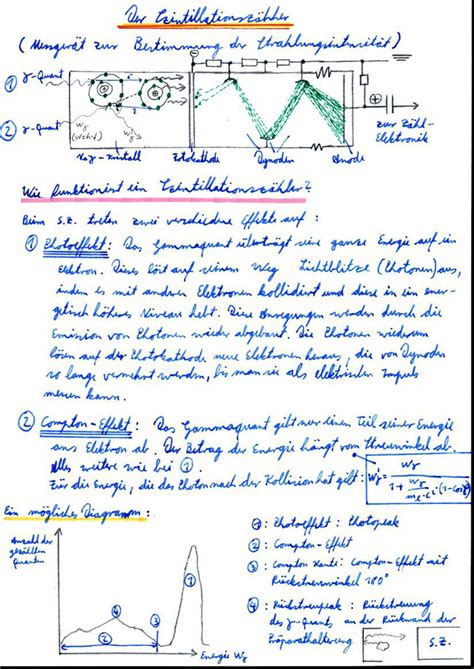 Der Szintillationszähler
(Messgerät zur Bestimmung der Strahlungsintensität)
① γ-Quant
② γ-Quant
Wγ'
zur Zähl-
Elektronik
Kristall Fotokathode Dynoden Anode
Wie funktioniert ein Szintillationszähler?
Beim S.Z. treten zwei verschiedene Effekte auf:
① Photoeffekt: Das Gammaquant überträgt seine ganze Energie auf ein
Elektron. Dieses löst auf seinem Weg Lichtblitze (Photonen) aus,
indem es mit anderen Elektronen kollidiert und diese in ein ener-
getisch höheres Niveau hebt. Diese Anregungen werden durch die
Emission von Photonen wieder abgebaut. Die Photonen wiederum
lösen auf der Photokathode neue Elektronen heraus, die von Dynoden
so lange vermehrt werden, bis man sie als elektrischen Impuls
messen kann.
② Compton-Effekt: Das Gammaquant gibt nur einen Teil seiner Energie
ans Elektron ab. Der Betrag der Energie hängt vom Streuwinkel ab.
Alles weitere wie bei ①.
Für die Energie, die das Photon nach der Kollision hat gilt:
Wγ' = Wγ / (1 + Wγ / (mₑ·c²) · (1-cosϑ))
Ein mögliches Diagramm:
Anzahl der
gezählten
Quanten
① ② ③ ④
Energie Wγ
①: Photoeffekt: Photopeak
②: Compton-Effekt
③: Compton Kante: Compton-Effekt mit
Rückstreuwinkel 180°
④: Rückstreupeak: Rückstreuung
des γ-Quant, an der Rückwand der
Präparathalterung
S.Z.